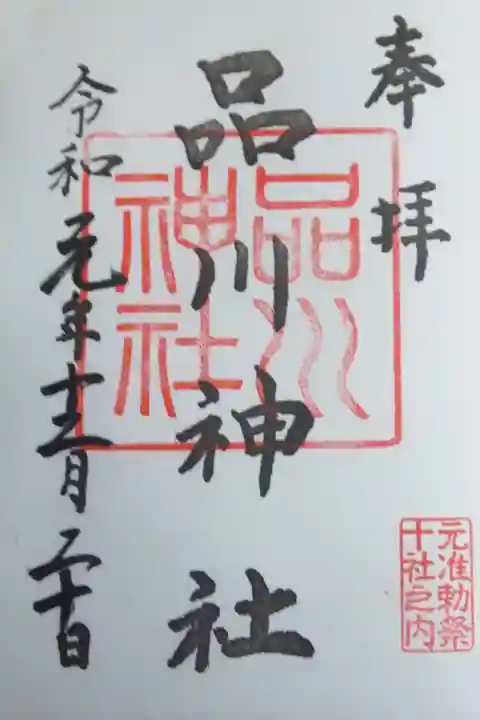 奉拝
品川神社
品川
神社
令和元年十二月二十日
元准勅祭
十社之内